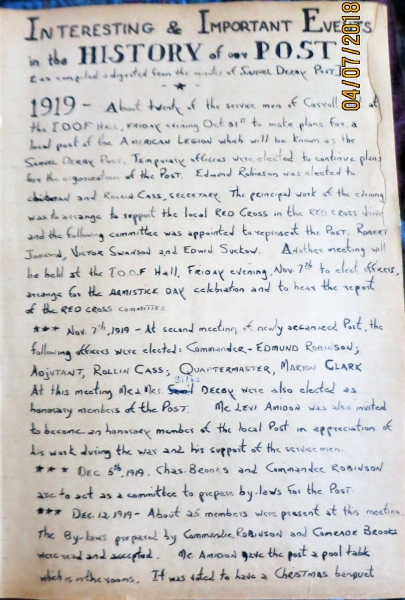 INTERESTING & IMPORTANT EVENTS
in the HISTORY of our POST
[as compiled & digested from the minutes of SAMUEL DEROY POST]
04/07/2018
1919 - About twenty of the service men of Carroll at
the IOOF HALL, FRIDAY evening Oct 31st to make plans for a
local post of the AMERICAN LEGION which will be known as the
SAMUEL DEROY POST. Temporary officers were elected to continue plans
for the organization of the POST. Edmund Robinson was elected to
chairman and ROLLIN CASS, SECRETARY. The principal work of the evening
was to arrange to support the local RED CROSS in the RED CROSS drive
and the following committee was appointed to represent the POST. ROBERT
JOHNSON, VICTOR SWANSON and EDWIN SUCKOW. Another meeting will
be held at the I.O.O.F Hall, FRIDAY evening, Nov. 7th to elect officers,
arrange for the ARMISTICE DAY celebration and to hear the report
of the RED CROSS committee
*** Nov. 7th, 1919 - At second meeting of newly organized Post, the
following officers were elected: Commander - EDMUND ROBINSON;
ADJUTANT, ROLLIN CASS; QUARTERMASTER, MARION CLARK
At this meeting MR & MRS. Silas DEROY were also elected as
honorary members of the POST. MR LEVI AMIDON was also invited
to become an honorary member of the local Post in appreciation of
his work during the war and his support of the service men.
*** DEC. 5th, 1919. Chas. BROOKS and Commander ROBINSON
are to act as a committee to prepare by-laws for the Post.
*** DEC 12 1919 - About 25 members were present at this meeting.
The By-laws prepared by Commander ROBINSON and COMRADE BROOKS
were read and accepted. MR AMIDON gave the post a pool table
which is in the rooms. It was voted to have a CHRISTMAS banquet